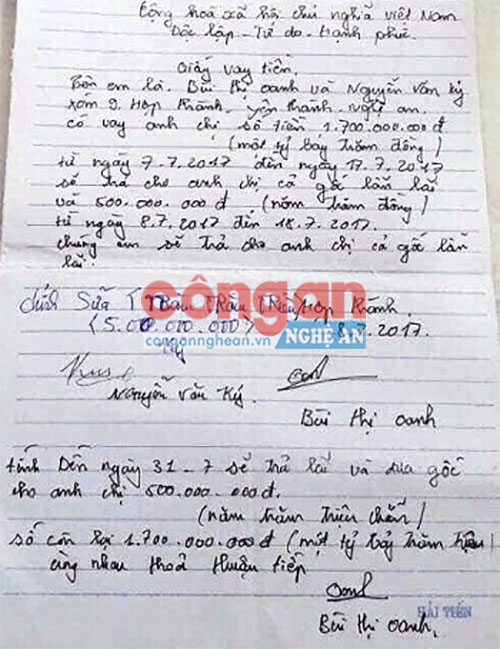 Cộng hoà xã hội chủ nghĩa việt Nam
Độc lập - Tự do - Hạnh phúc.
Giấy vay tiền.
Bên em là. Bùi thị oanh và Nguyễn Văn Ký
xóm 9. Hợp Khánh. yên thành nghệ an.
có vay anh chị số tiền 1.700.000.000đ
(một tỷ bảy trăm đồng)
từ ngày 7.7.2017 đến ngày 17.7.2017
sẽ trả cho anh chị cả gốc lẫn lãi
và 500.000.000đ (năm trăm đồng)
từ ngày 8.7.2017 đến 18.7.2017.
chúng em sẽ trả cho anh chị cả gốc lẫn
lãi.
công an
congannghean.vn NGHỆ AN
Sửa Hợp Khánh.
(500.000.000) 8.7.2017.
Nguyễn Văn Ký.
Bùi thị oanh
tính Đến ngày 31-7 sẽ trả lãi và đưa gốc
cho anh chị 500.000.000đ.
(năm trăm triệu chẵn)
số còn lại 1.700.000.000đ (một tỷ bảy trăm triệu)
cùng nhau thoả thuận tiếp
Bùi thị oanh.
HẢI TIẾN